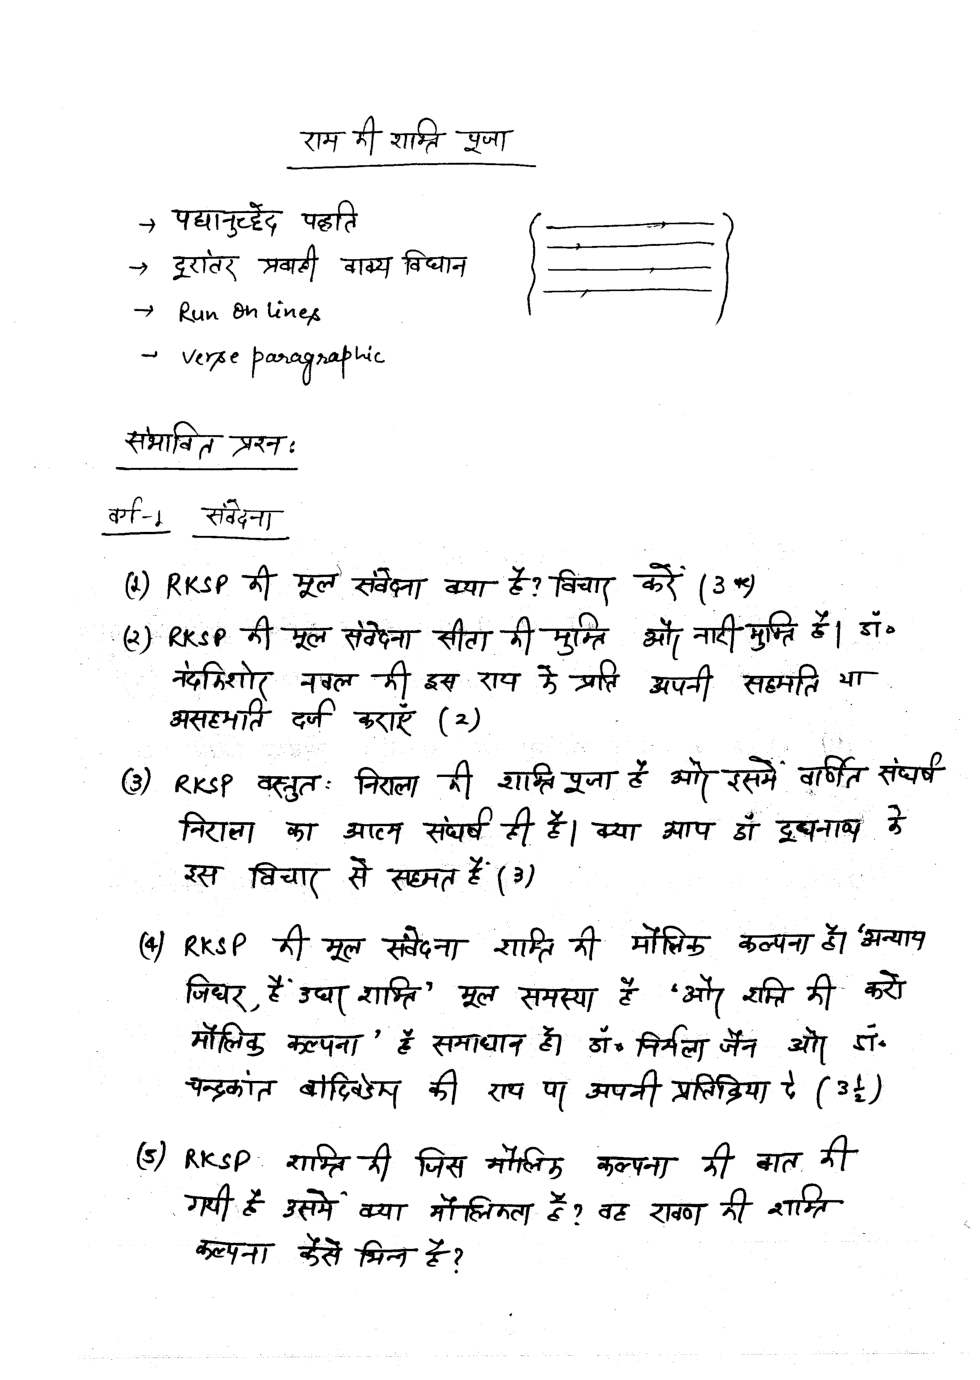 राम की शक्ति पूजा
→ पद्यानुच्छेद पद्धति
→ दूरांतर प्रवाही वाक्य विधान
→ Run on lines
→ verse paragraphic
संभावित प्रश्न:
वर्ग-1 संवेदना
(1) RKSP की मूल संवेदना क्या है? विचार करें (3*)
(2) RKSP की मूल संवेदना सीता की मुक्ति और नारी मुक्ति है। डॉ॰
नंदकिशोर नवल की इस राय के प्रति अपनी सहमति या
असहमति दर्ज कराएँ (2)
(3) RKSP वस्तुत: निराला की शक्ति पूजा है और इसमें वर्णित संघर्ष
निराला का आत्म संघर्ष ही है। क्या आप डॉ दूधनाथ के
इस विचार से सहमत हैं (3)
(4) RKSP की मूल संवेदना शक्ति की मौलिक कल्पना है। 'अन्याय
जिधर, हैं उधर शक्ति' मूल समस्या है 'और शक्ति की करो
मौलिक कल्पना' है समाधान है। डॉ॰ निर्मला जैन और डॉ॰
चन्द्रकांत बांदिवडेकर की राय पर अपनी प्रतिक्रिया दे (3½)
(5) RKSP शक्ति की जिस मौलिक कल्पना की बात की
गयी है उसमें क्या मौलिकता है? वह रावण की शक्ति
कल्पना कैसे भिन्न है?